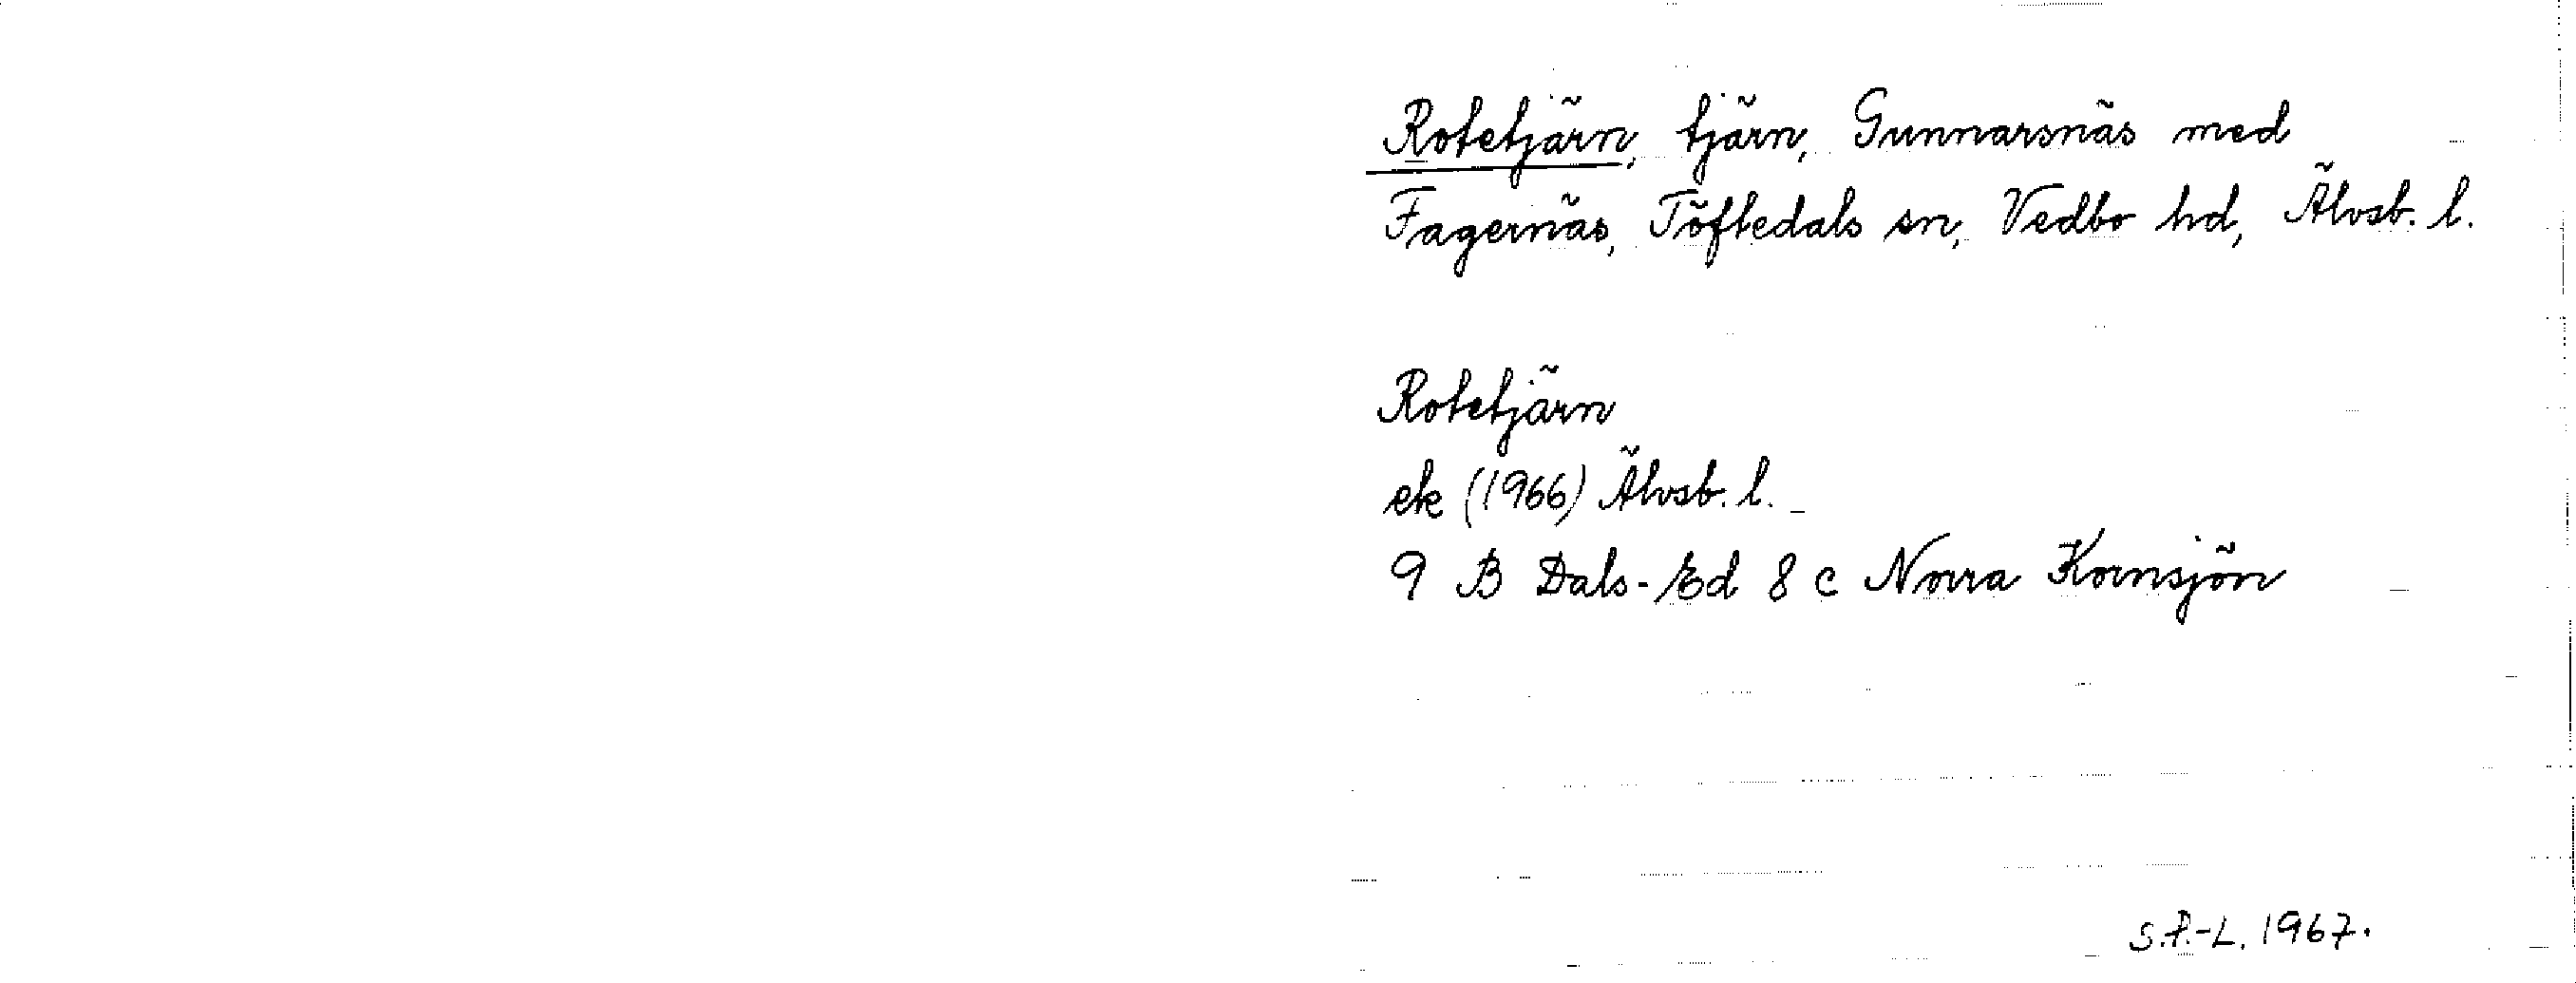 Rotetjärn, tjärn, Gunnarsnäs med
Fagernäs, Töftedals sn, Vedbo hd, Älvsb. l.
Rotetjärn
ek (1966) Älvsb. l.
9 B Dals-Ed 8 c Norra Kornsjön
S.P.-L. 1967.